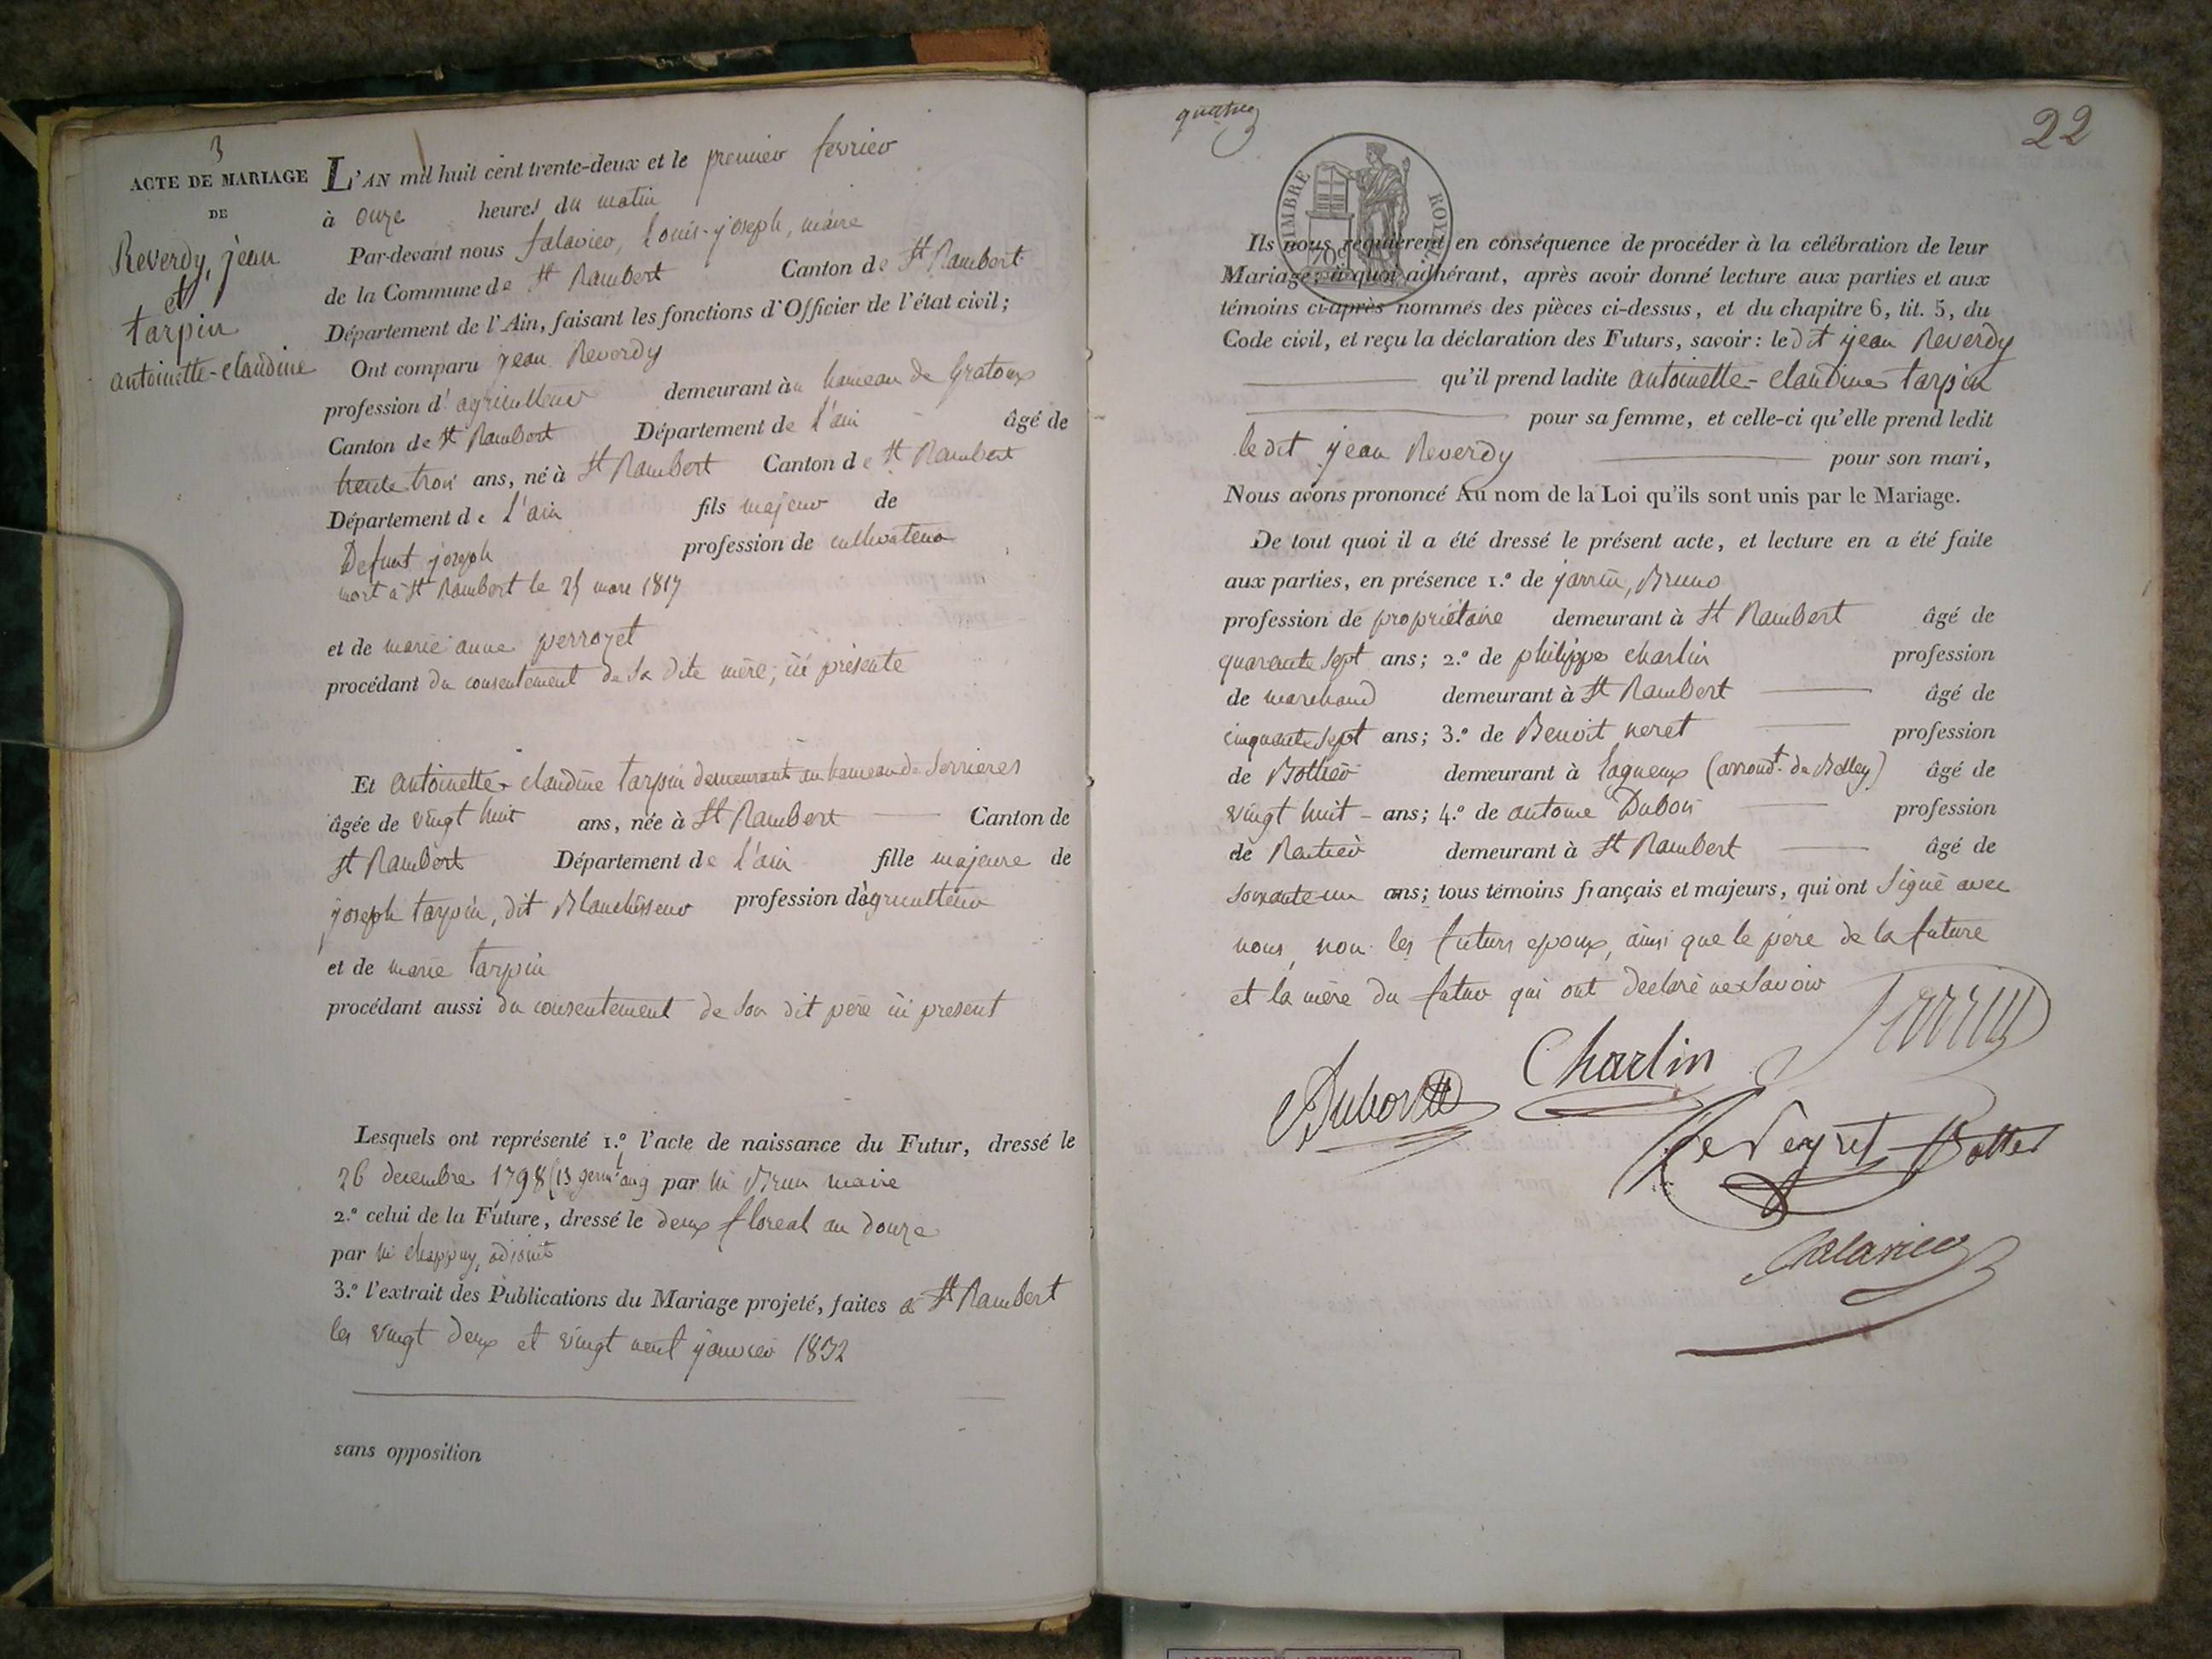 3
ACTE DE MARIAGE
DE
Reverdy, jean
et
tarpin
antoinette-claudine
L'AN mil huit cent trente-deux et le premier fevrier
à onze heures du matin
Par-devant nous falavier, Louis-joseph, maire
de la Commune de St Rambert Canton de St Rambert
Département de l'Ain, faisant les fonctions d'Officier de l'état civil;
Ont comparu jean Reverdy
profession d'agriculteur demeurant au hameau de Gratoux
Canton de St Rambert Département de l'ain âgé de
trente trois ans, né à St Rambert Canton de St Rambert
Département de l'ain fils majeur de
Defunt joseph profession de cultivateur
mort à St Rambert le 25 mars 1817
et de marie anne perrozet
procédant du consentement de sa dite mère, ici présente
Et antoinette-claudine tarpin demeurant au hameau de Serrieres
âgée de vingt huit ans, née à St Rambert Canton de
St Rambert Département de l'ain fille majeure de
joseph tarpin, dit Blanchisseur profession d'agriculteur
et de marie tarpin
procédant aussi du consentement de son dit père ici present
Lesquels ont représenté 1.º l'acte de naissance du Futur, dressé le
26 decembre 1798 (13 germ. par Mr Brun maire
2.º celui de la Future, dressé le deux floreal an douze
par Mr Chappuy, adjoint
3.º l'extrait des Publications du Mariage projeté, faites à St Rambert
les vingt deux et vingt neuf janvier 1832
sans opposition
22
TIMBRE ROYAL
70c
Ils nous requièrent en conséquence de procéder à la célébration de leur
Mariage; à quoi adhérant, après avoir donné lecture aux parties et aux
témoins ci-après nommés des pièces ci-dessus, et du chapitre 6, tit. 5, du
Code civil, et reçu la déclaration des Futurs, savoir: ledit jean Reverdy
qu'il prend ladite antoinette-claudine tarpin
pour sa femme, et celle-ci qu'elle prend ledit
le dit jean Reverdy pour son mari,
Nous avons prononcé Au nom de la Loi qu'ils sont unis par le Mariage.
De tout quoi il a été dressé le présent acte, et lecture en a été faite
aux parties, en présence 1.º de jarrin, Bruno
profession de propriétaire demeurant à St Rambert âgé de
quarante sept ans; 2.º de philippe charlin profession
de marchand demeurant à St Rambert âgé de
cinquante sept ans; 3.º de Benoit neret profession
de Bottier demeurant à lagneux (arrondt. de Belley) âgé de
vingt huit ans; 4.º de antoine Dubois profession
de Rentier demeurant à St Rambert âgé de
soixante-un ans; tous témoins français et majeurs, qui ont signé avec
nous, non les futurs epoux, ainsi que le père de la future
et la mère du futur qui ont declaré ne savoir
Jarrin
Charlin
Dubois
Botter
falavier